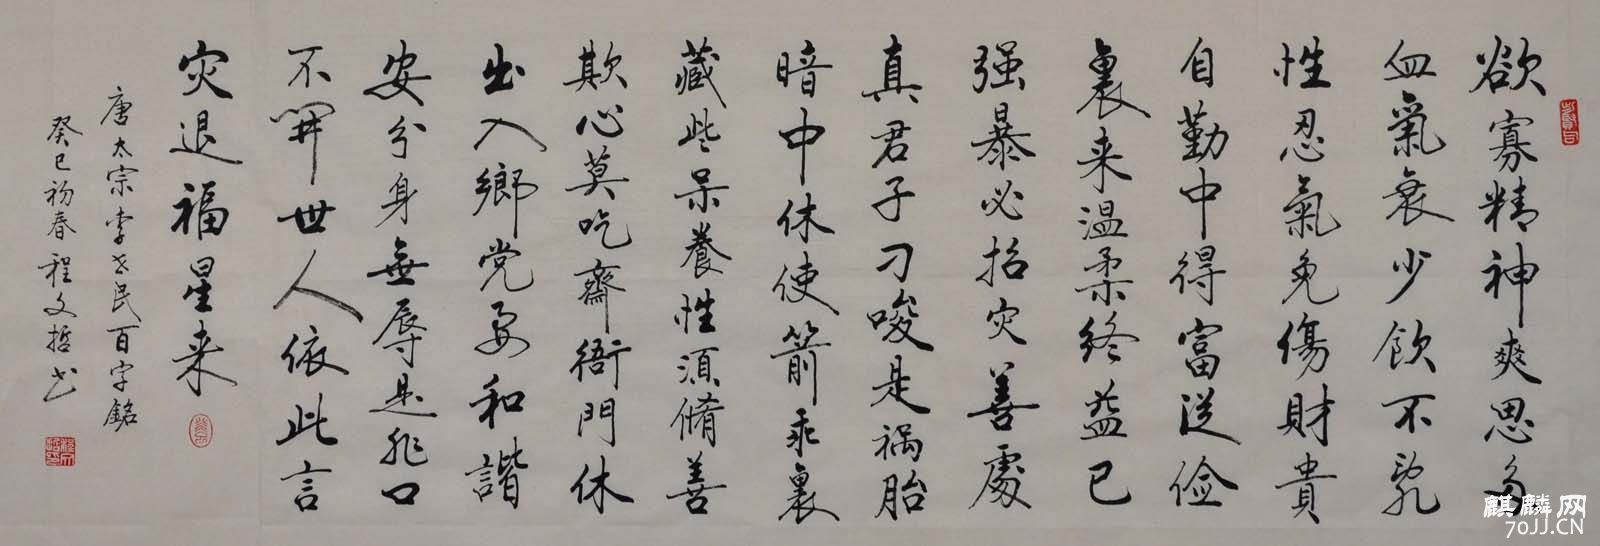 欲寡精神爽思多
血氣衰少飲不乱
性忍氣免傷財貴
自勤中得富送俭
裏来温柔終益已
强暴必招灾善處
真君子刁唆是禍胎
暗中休使箭乖裏
藏些呆養性須脩善
欺心莫吃齋衙門休
出入鄉党要和諧
安分身無辱是非口
不開世人依此言
灾退福星来
唐太宗李世民百字銘
癸巳初春程文哲书
麒麟网
70JJ.CN